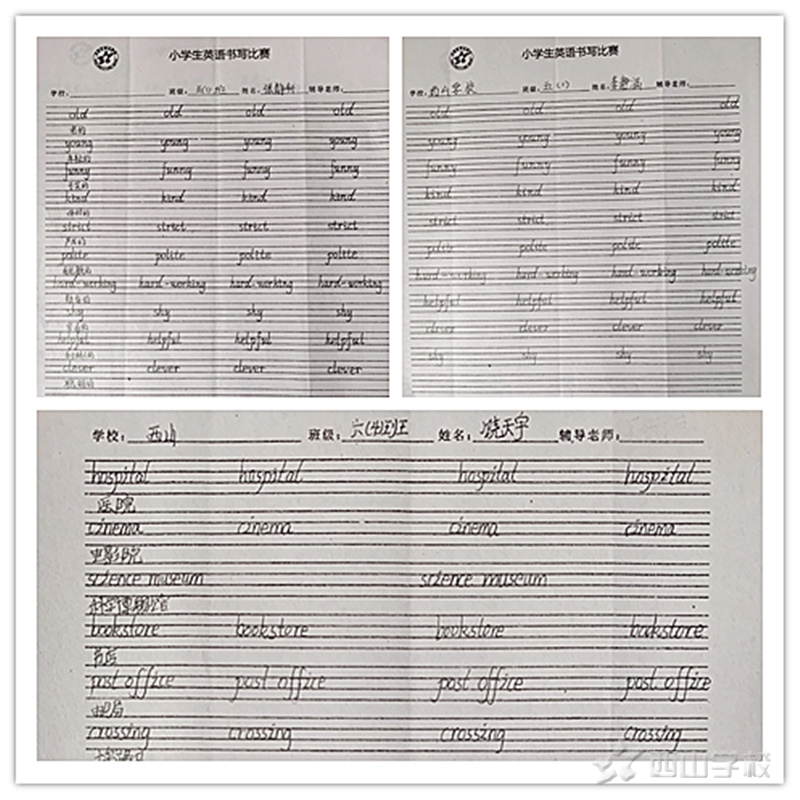 小学生英语书写比赛
学校： 班级： 五(1)班 姓名： 张静 辅导老师：
old old old old
老的
young young young young
年轻的
funny funny funny funny
kind kind kind kind
strict strict strict strict
polite polite polite polite
有礼貌的
hard-working hard-working hard-working hard-working
shy shy shy shy
害羞的
helpful helpful helpful helpful
clever clever clever clever
聪明的
小学生英语书写比赛
学校： 西山学校 班级： 五(1) 姓名： 李 辅导老师：
old old old old
young young young young
funny funny funny funny
kind kind kind kind
strict strict strict strict
polite polite polite polite
hard-working hard-working hard-working hard-working
helpful helpful helpful helpful
clever clever clever clever
shy shy shy shy
学校： 西山 班级： 六(4)班 姓名： 饶天宇 辅导老师：
hospital hospital hospital hospital
医院
cinema cinema cinema cinema
电影院
science museum science museum
科学博物馆
bookstore bookstore bookstore bookstore
书店
post office post office post office post office
邮局
crossing crossing crossing crossing
西山学校